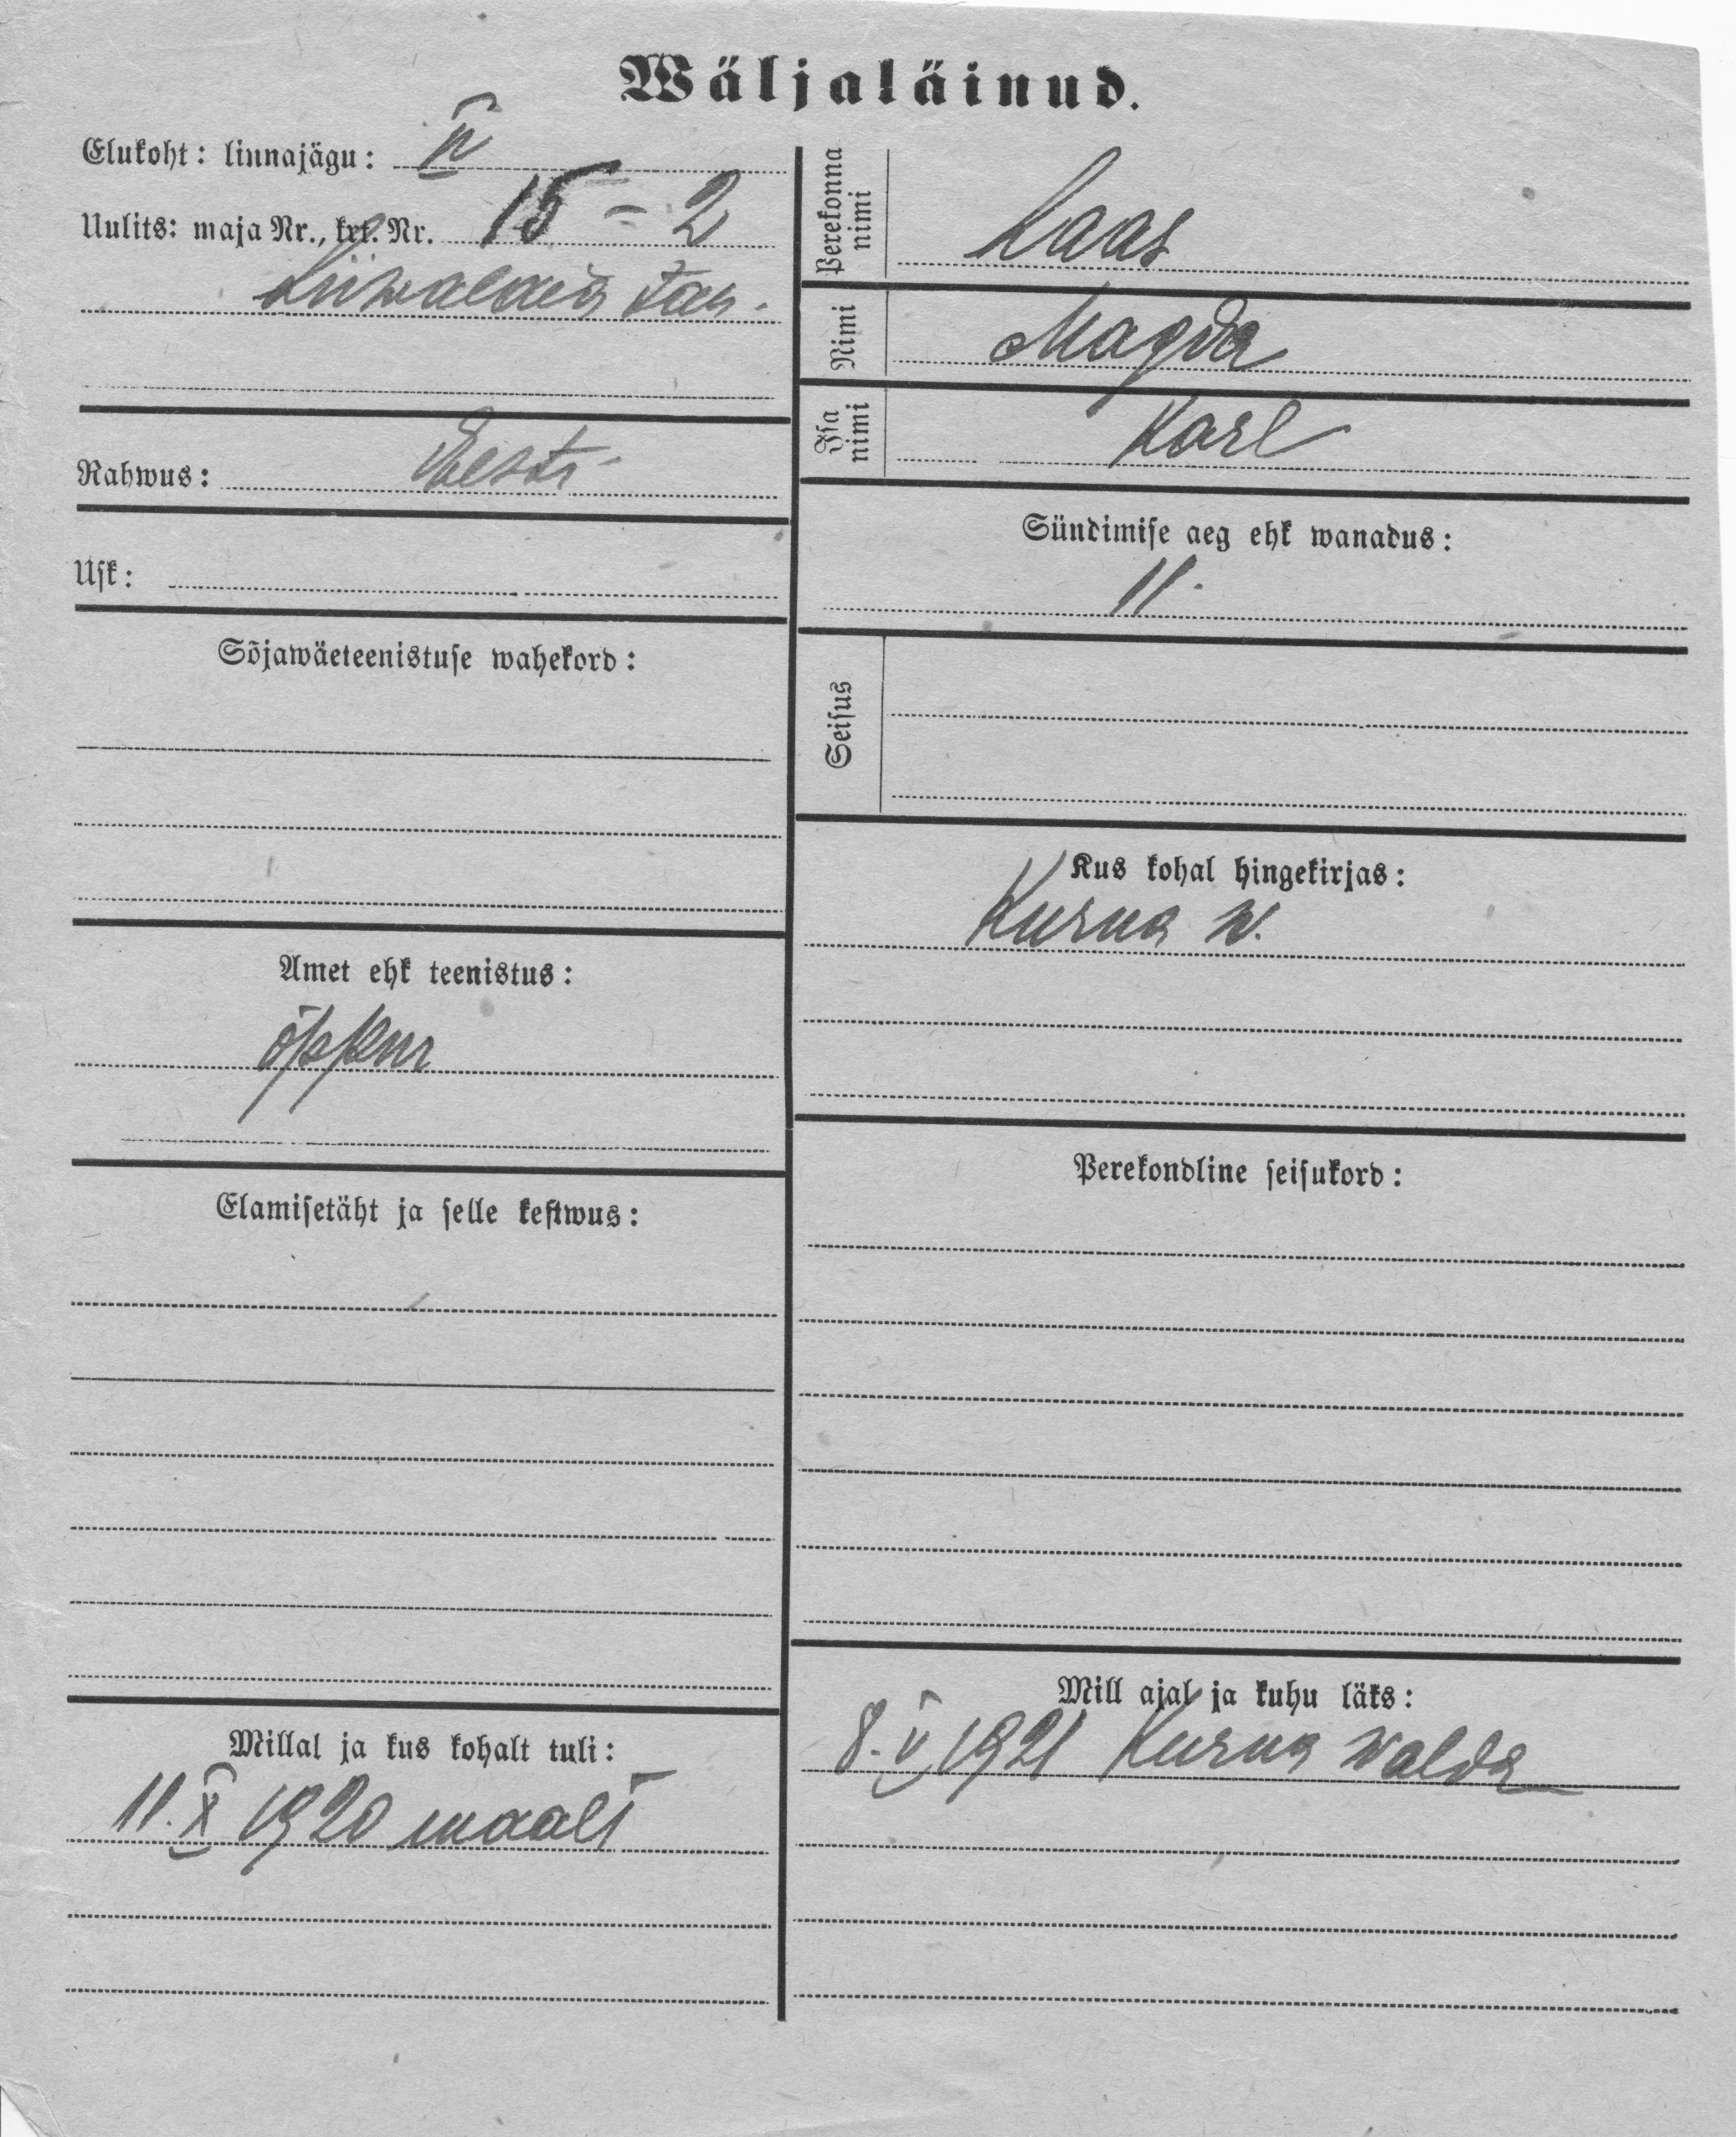 Wäljaläinud.
Elukoht: linnajägu: II
Uulits: maja Nr., krt. Nr. 15 – 2
Liiwalaia tän.
Rahwus: Eesti
Usk:
Sõjawäeteenistuse wahekord:
Amet ehk teenistus:
õppur
Elamisetäht ja selle kestwus:
Millal ja kus kohalt tuli:
11. X 1920 maalt
Perekonna nimi Laas
Nimi Magda
Isa nimi Karl
Sündimise aeg ehk wanadus:
11.
Seisus
Kus kohal hingekirjas:
Kurna w.
Perekondline seisukord:
Mill ajal ja kuhu läks:
8. V 1921 Kurna walda